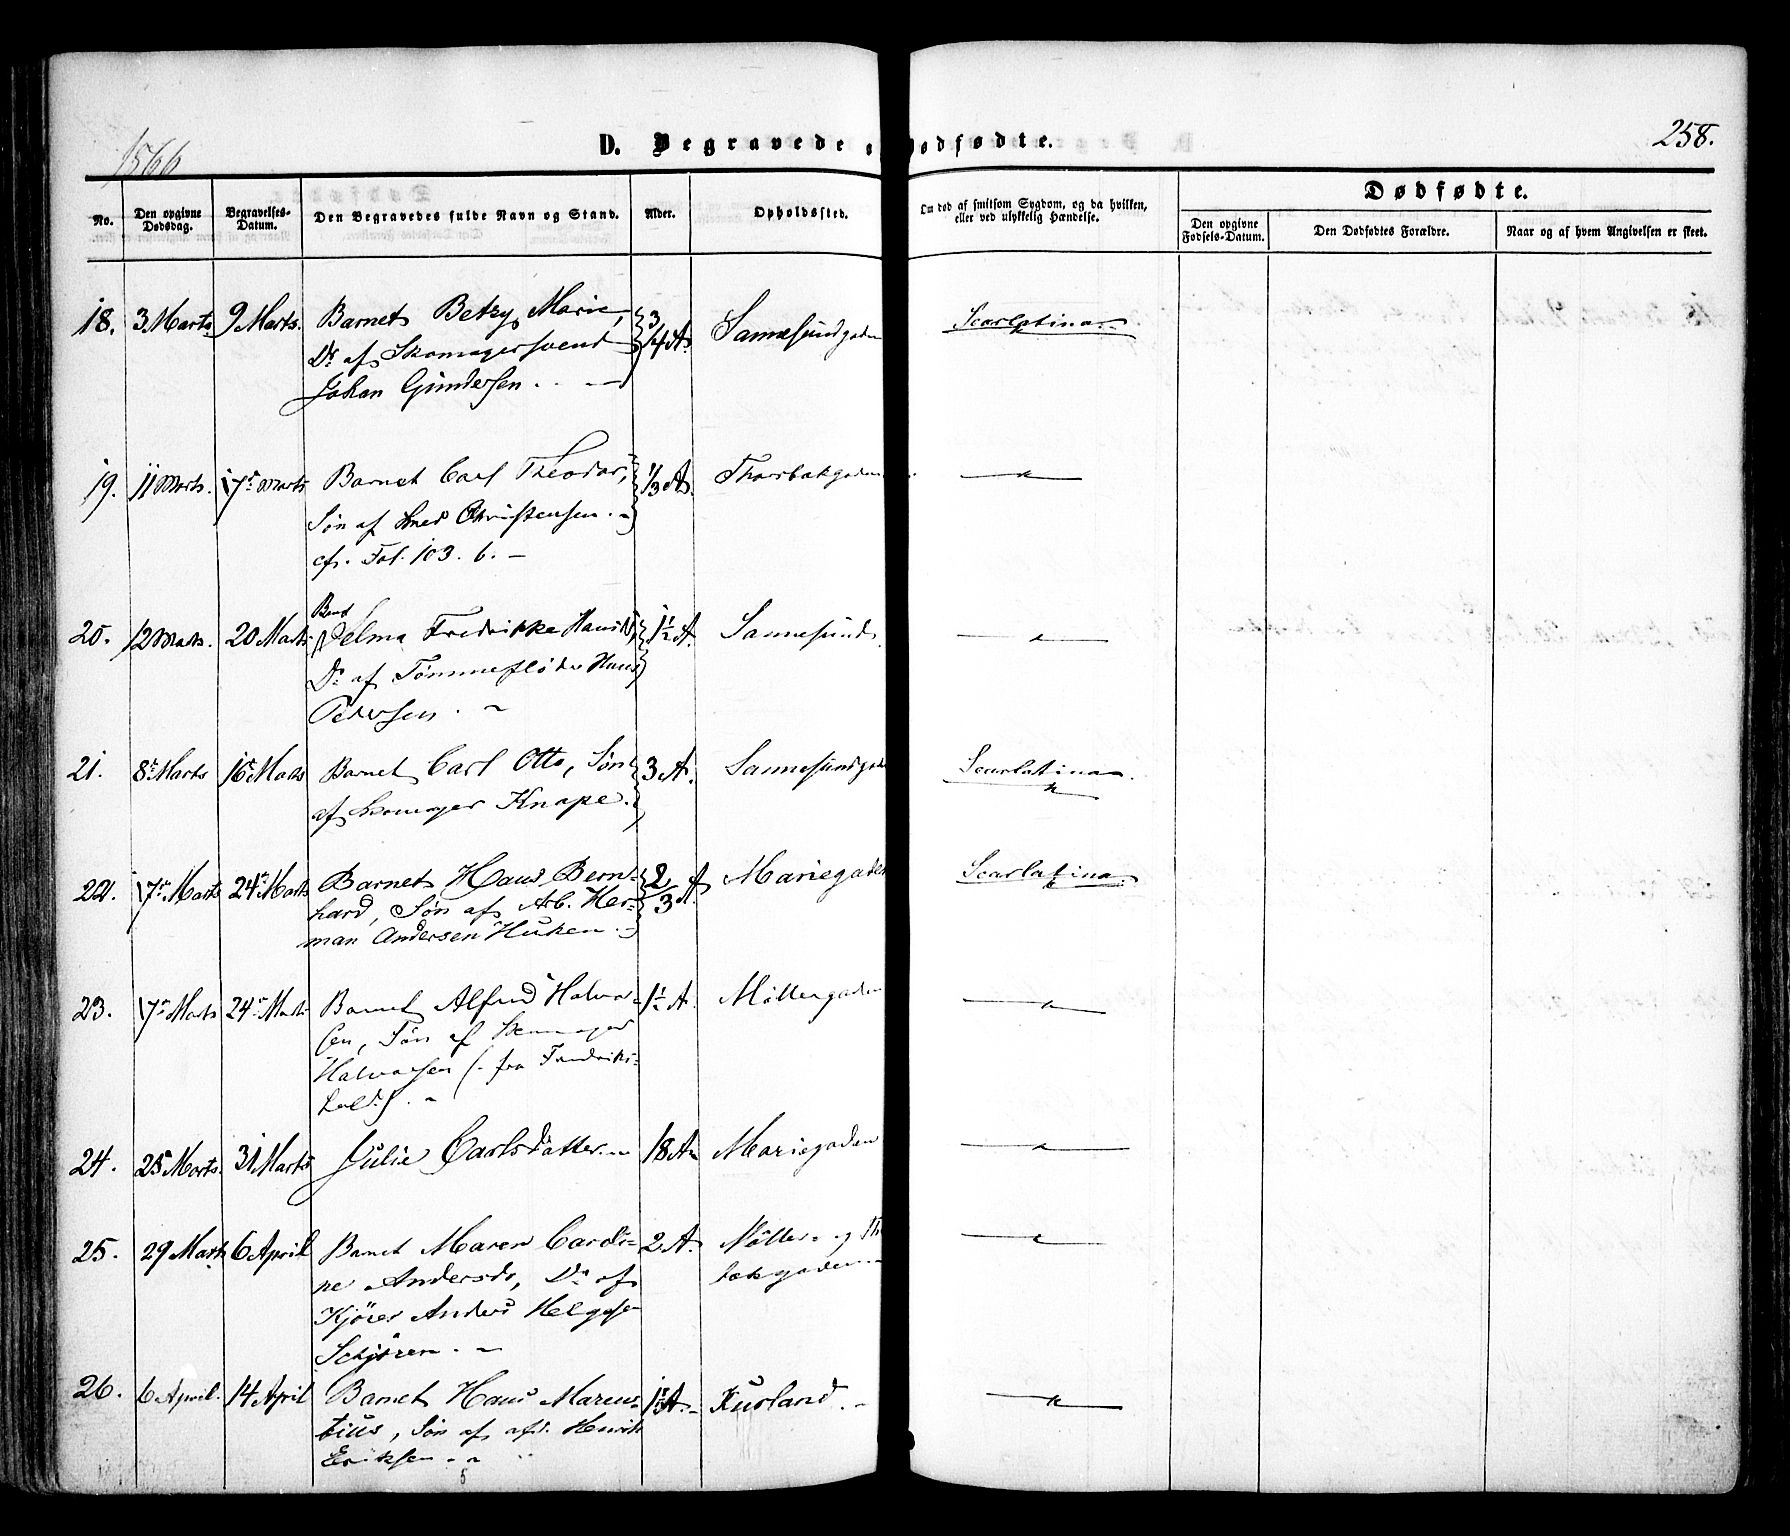 1866
D. Begravede o Dødfødte.
258.
No.
Den opgivne Dødsdag.
Begravelses-Datum.
Den Begravedes fulde Navn og Stand.
Alder.
Opholdssted.
Om død af smitsom Sygdom, og da hvilken, eller ved ulykkelig Hændelse.
Dødfødte.
Den opgivne Fødsels-Datum.
Den Dødfødtes Forældre.
Naar og af hvem Angivelsen er skeet.
18. 3 Marts 9 Marts. Barnet Betzy Marie, 3/4 A. Sannesundgaden Scarlatina.
Dr af Skomagersvend
Johan Gundersen . . —
19. 11 Marts. 17 Marts Barnet Carl Theodor, 1/3 A. Thorsbakgaden — " —
Søn af Smed Christensen. -
cfr. Fol. 103. b. —
20. 12 Marts. 20 Marts Barnet Velma Fredrikke Hansd, 1 1/2 A. Sannesund. — " —
Dr af Tømmefløder Hans
Pedersen . -
21. 8 Marts 16 Marts Barnet Carl Otto, Søn 3 A. Sannesundgaden Scarlatina.
af Skomager Knape.
22. 17 Marts 24 Marts Barnet Hans Bern- 2/3 A. Mariegaden Scarlatina.
hard, Søn af Arb. Her-
man Andersen Huken. -
23. 17 Marts 24 Marts Barnet Alfred Halvor- 1 1/2 A. Møllergaden — " —
sen, Søn af Skomager
Halvorsen (- fra Fredriks-
hald.) . -
24. 25 Marts. 31 Marts Julie Carlsdatter. - 18 A. Mariegaden — " —
25. 29 Marts 6 April Barnet Maren Cardi- 2 A. Møller- og Th
ne Andersdr, Dr af bakgaden. - — " —
Kjører Anders Helgesen
Schjøren. -
26. 6 April. 14 April Barnet Hans Mauren- Kurland. - — " —
tius, Søn af afd. Henrik
Eriksen. -